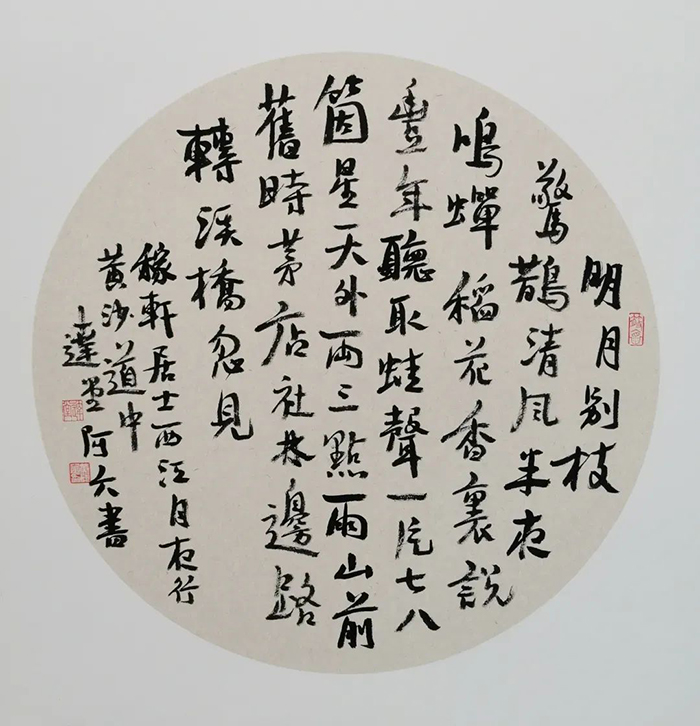 明月别枝
驚鵲清風半夜
鳴蟬稻花香裏説
豐年聽取蛙聲一片七八
箇星天外兩三點雨山前
舊時茅店社林邊路
轉溪橋忽見
稼軒居士西江月夜行
黃沙道中
上達堂阿六書